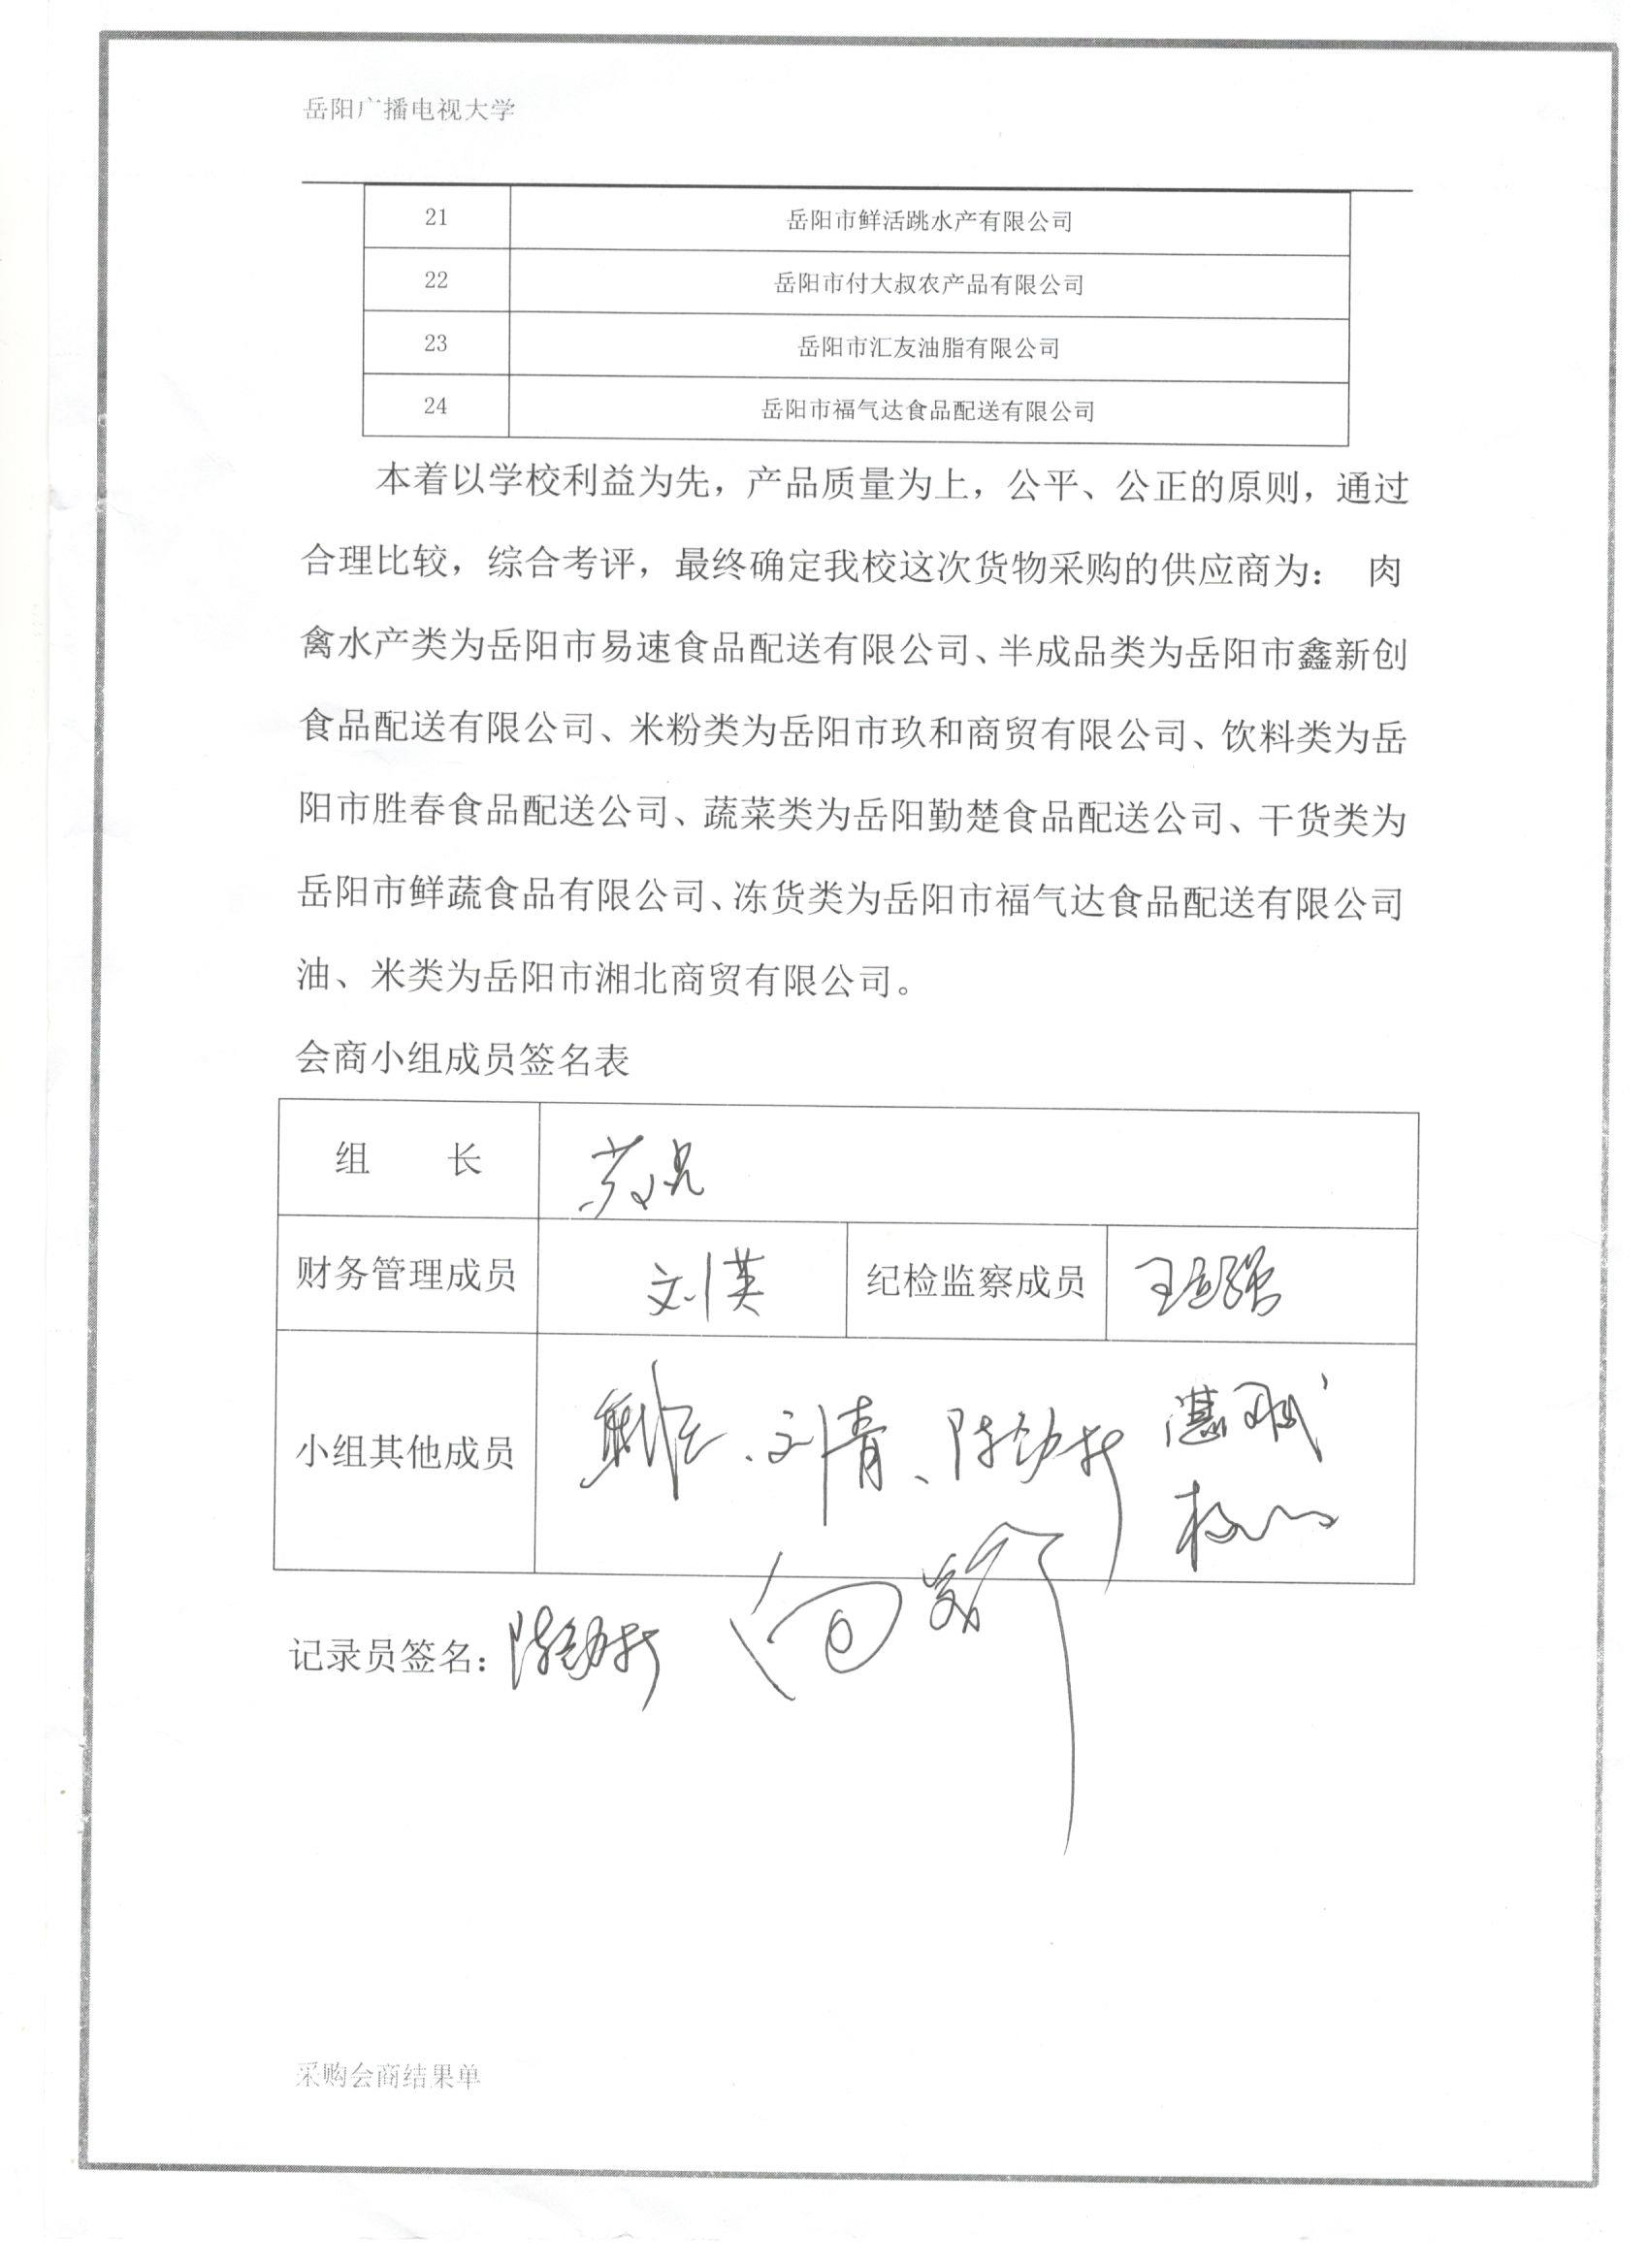 岳阳广播电视大学
21 岳阳市鲜活跳水产有限公司
22 岳阳市付大叔农产品有限公司
23 岳阳市汇友油脂有限公司
24 岳阳市福气达食品配送有限公司
本着以学校利益为先，产品质量为上，公平、公正的原则，通过
合理比较，综合考评，最终确定我校这次货物采购的供应商为： 肉
禽水产类为岳阳市易速食品配送有限公司、半成品类为岳阳市鑫新创
食品配送有限公司、米粉类为岳阳市玖和商贸有限公司、饮料类为岳
阳市胜春食品配送公司、蔬菜类为岳阳勤楚食品配送公司、干货类为
岳阳市鲜蔬食品有限公司、冻货类为岳阳市福气达食品配送有限公司
油、米类为岳阳市湘北商贸有限公司。
会商小组成员签名表
组 长
财务管理成员 刘英 纪检监察成员
小组其他成员 刘青、
记录员签名：
采购会商结果单